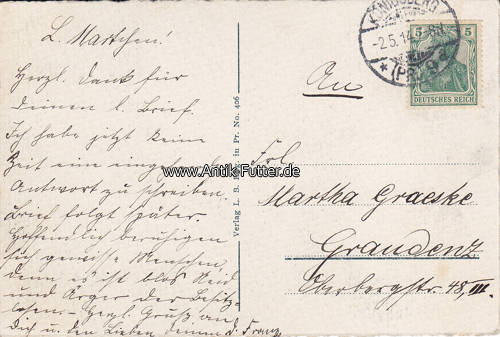 L. Martchen!
Herzl. Dank für
deinen l. Brief.
Ich habe jetzt keine
Zeit eine eingehende
Antwort zu schreiben.
Brief folgt später.
Hoffendlich beruhigen
sich gewisse Menschen,
denn es ist blos Neid
und Ärger der Besitz
losen. Herzl. Gruß an
Dich u. den Lieben deinen d. Franz
Verlag L. B. in Pr. No. 406
KÖNIGSBERG
-2.5.14
* (PR.)
5 5
DEUTSCHES REICH
An
Frl.
Martha Graeske
Graudenz
Oberbergstr. 48, III.
www.Antik-Futter.de